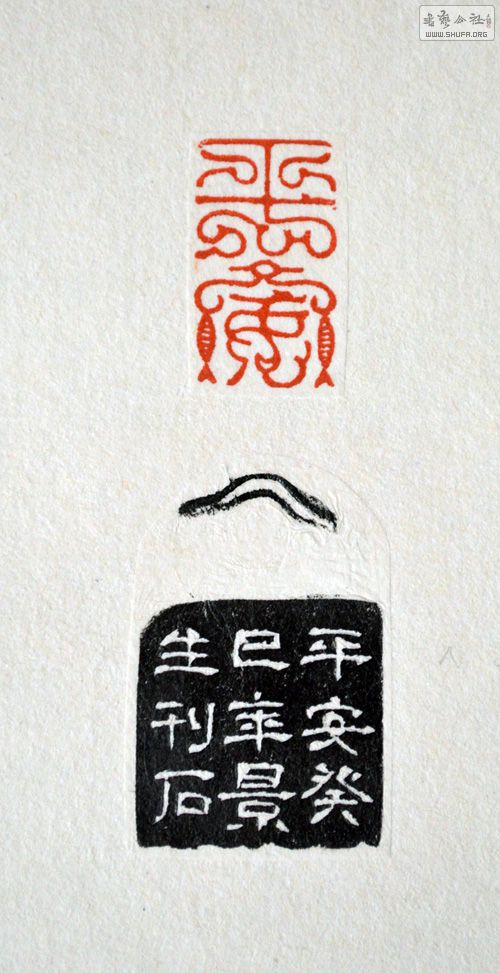 書藝公社
WWW.SHUFA.ORG
平安
平安癸
巳年景
生刊石